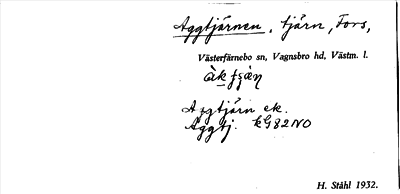 Aggtjärnen, tjärn, Fors,
Västerfärnebo sn, Vagnsbro hd, Västm. l.
Aggtjärn ek.
Äggtj. kG82NO
H. Ståhl 1932.